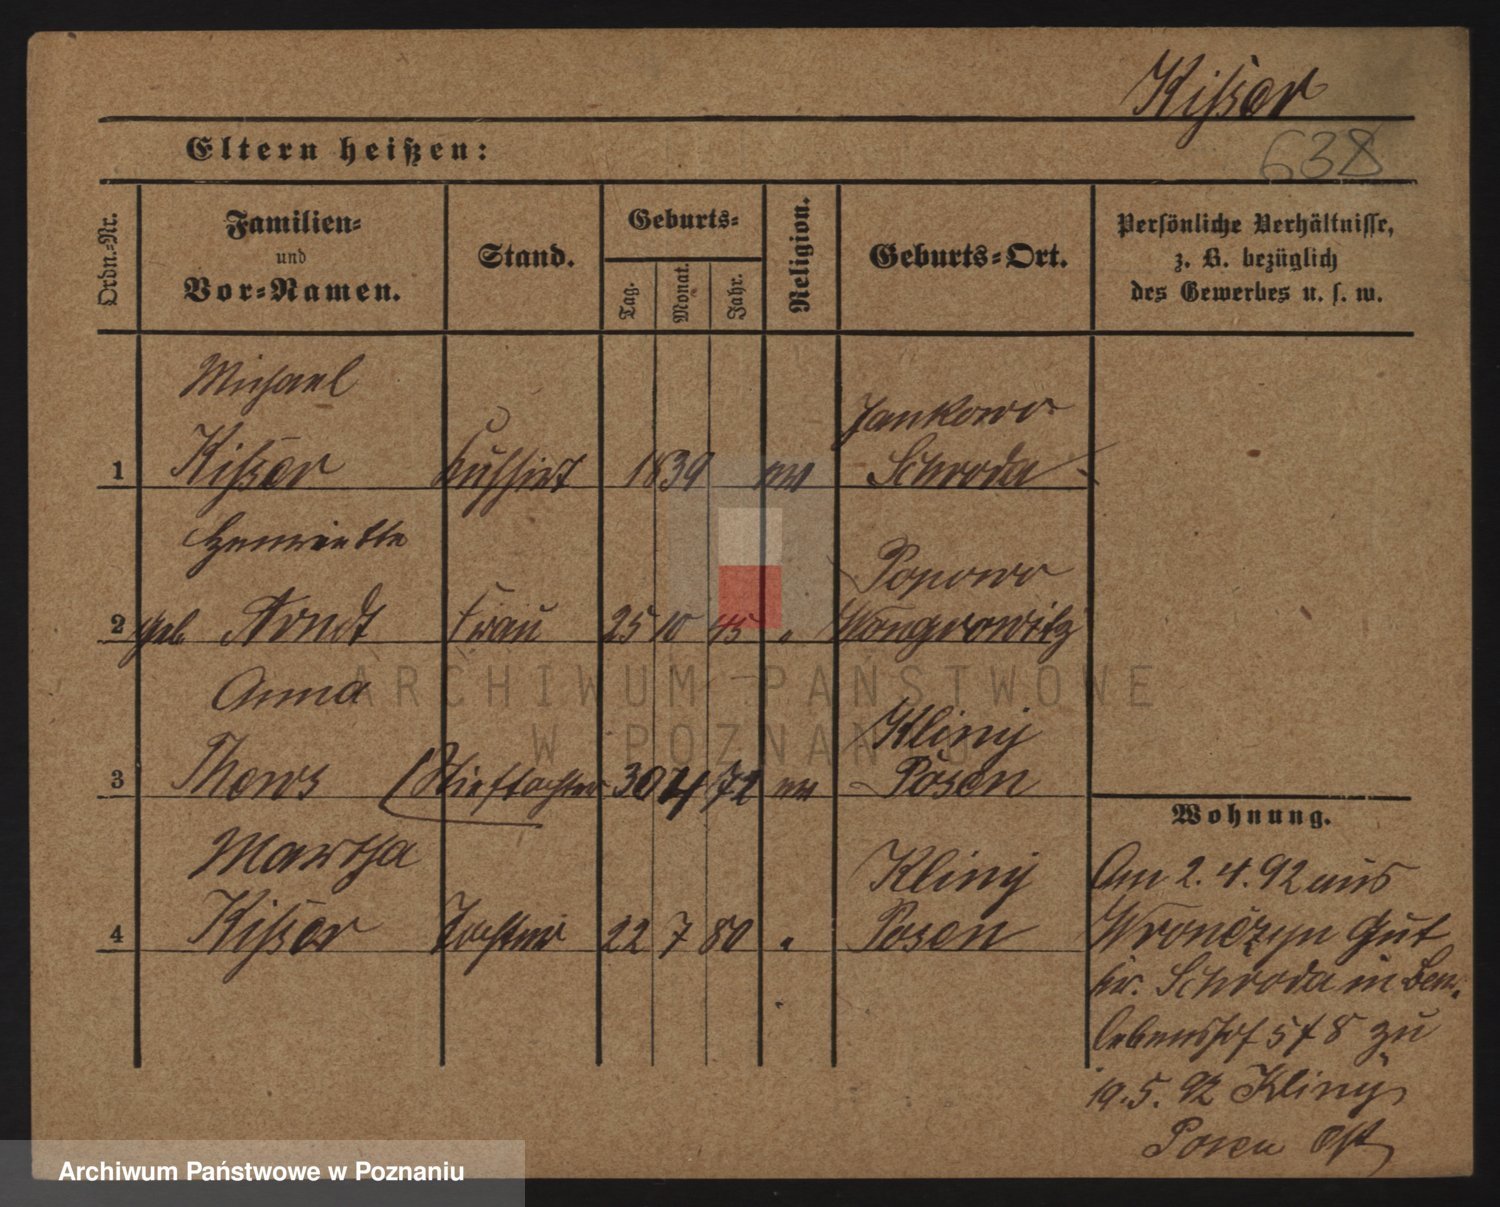 Kisser
638
Eltern heißen:
Ordn.-Nr.
Familien-
und
Vor-Namen.
Stand.
Geburts-
Tag.
Monat.
Jahr.
Religion.
Geburts-Ort.
Persönliche Verhältnisse,
z. B. bezüglich
des Gewerbes u. s. w.
Michael
Jankowo
1 Kisser 1839 ev Schroda
Henriette
Popowo
2 geb Arndt Frau 25 10 45 " Wongrowitz
Anna
Kliny
3 Thews Stieftochter 30 4 72 ev Posen
Martha
Kliny
4 Kisser Tochter 22 7 80 " Posen
Wohnung.
Am 2. 4. 92 aus
Wronczyn Gut
Kr. Schroda in
578 zu
19. 5. 92 Kliny
Posen Ost
ARCHIWUM PAŃSTWOWE
W POZNANIU
Archiwum Państwowe w Poznaniu